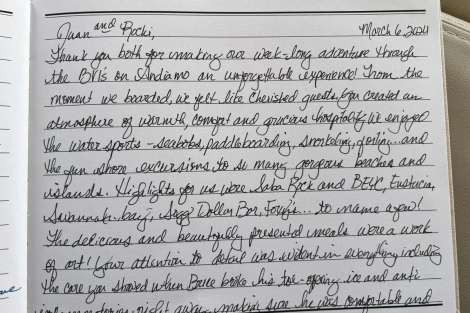 Juan and Rocki,
March 6, 2024
Thank you both for making our week-long adventure through
the BVIs on Andiamo an unforgettable experience! From the
moment we boarded, we felt like cherished guests. You created an
atmosphere of warmth, comfort and gracious hospitality. We enjoyed
the water sports - seabobs, paddleboarding, snorkeling, foiling.. and
the fun ashore excursions, to so many gorgeous beaches and
islands. Highlights for us were Saba Rock and BEYC, Eustacia,
Savannah bay, Soggy Dollar Bar, Foxy's... to name a few!
The delicious and beautifully presented meals were a work
of art! Your attention to detail was evident in everything including
the care you showed when Bruce broke his toe - ice and anti
right away - making sure he was comfortable and